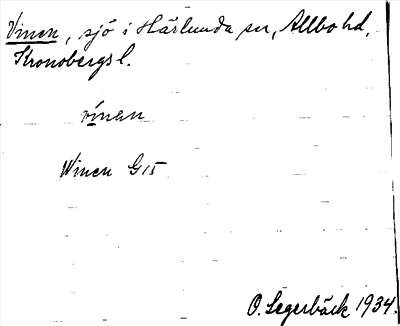 Vinen, sjö i Härlunda sn, Allbo hd,
Kronobergs l.
vínan
Winen G15
O. Segerbäck 1934.